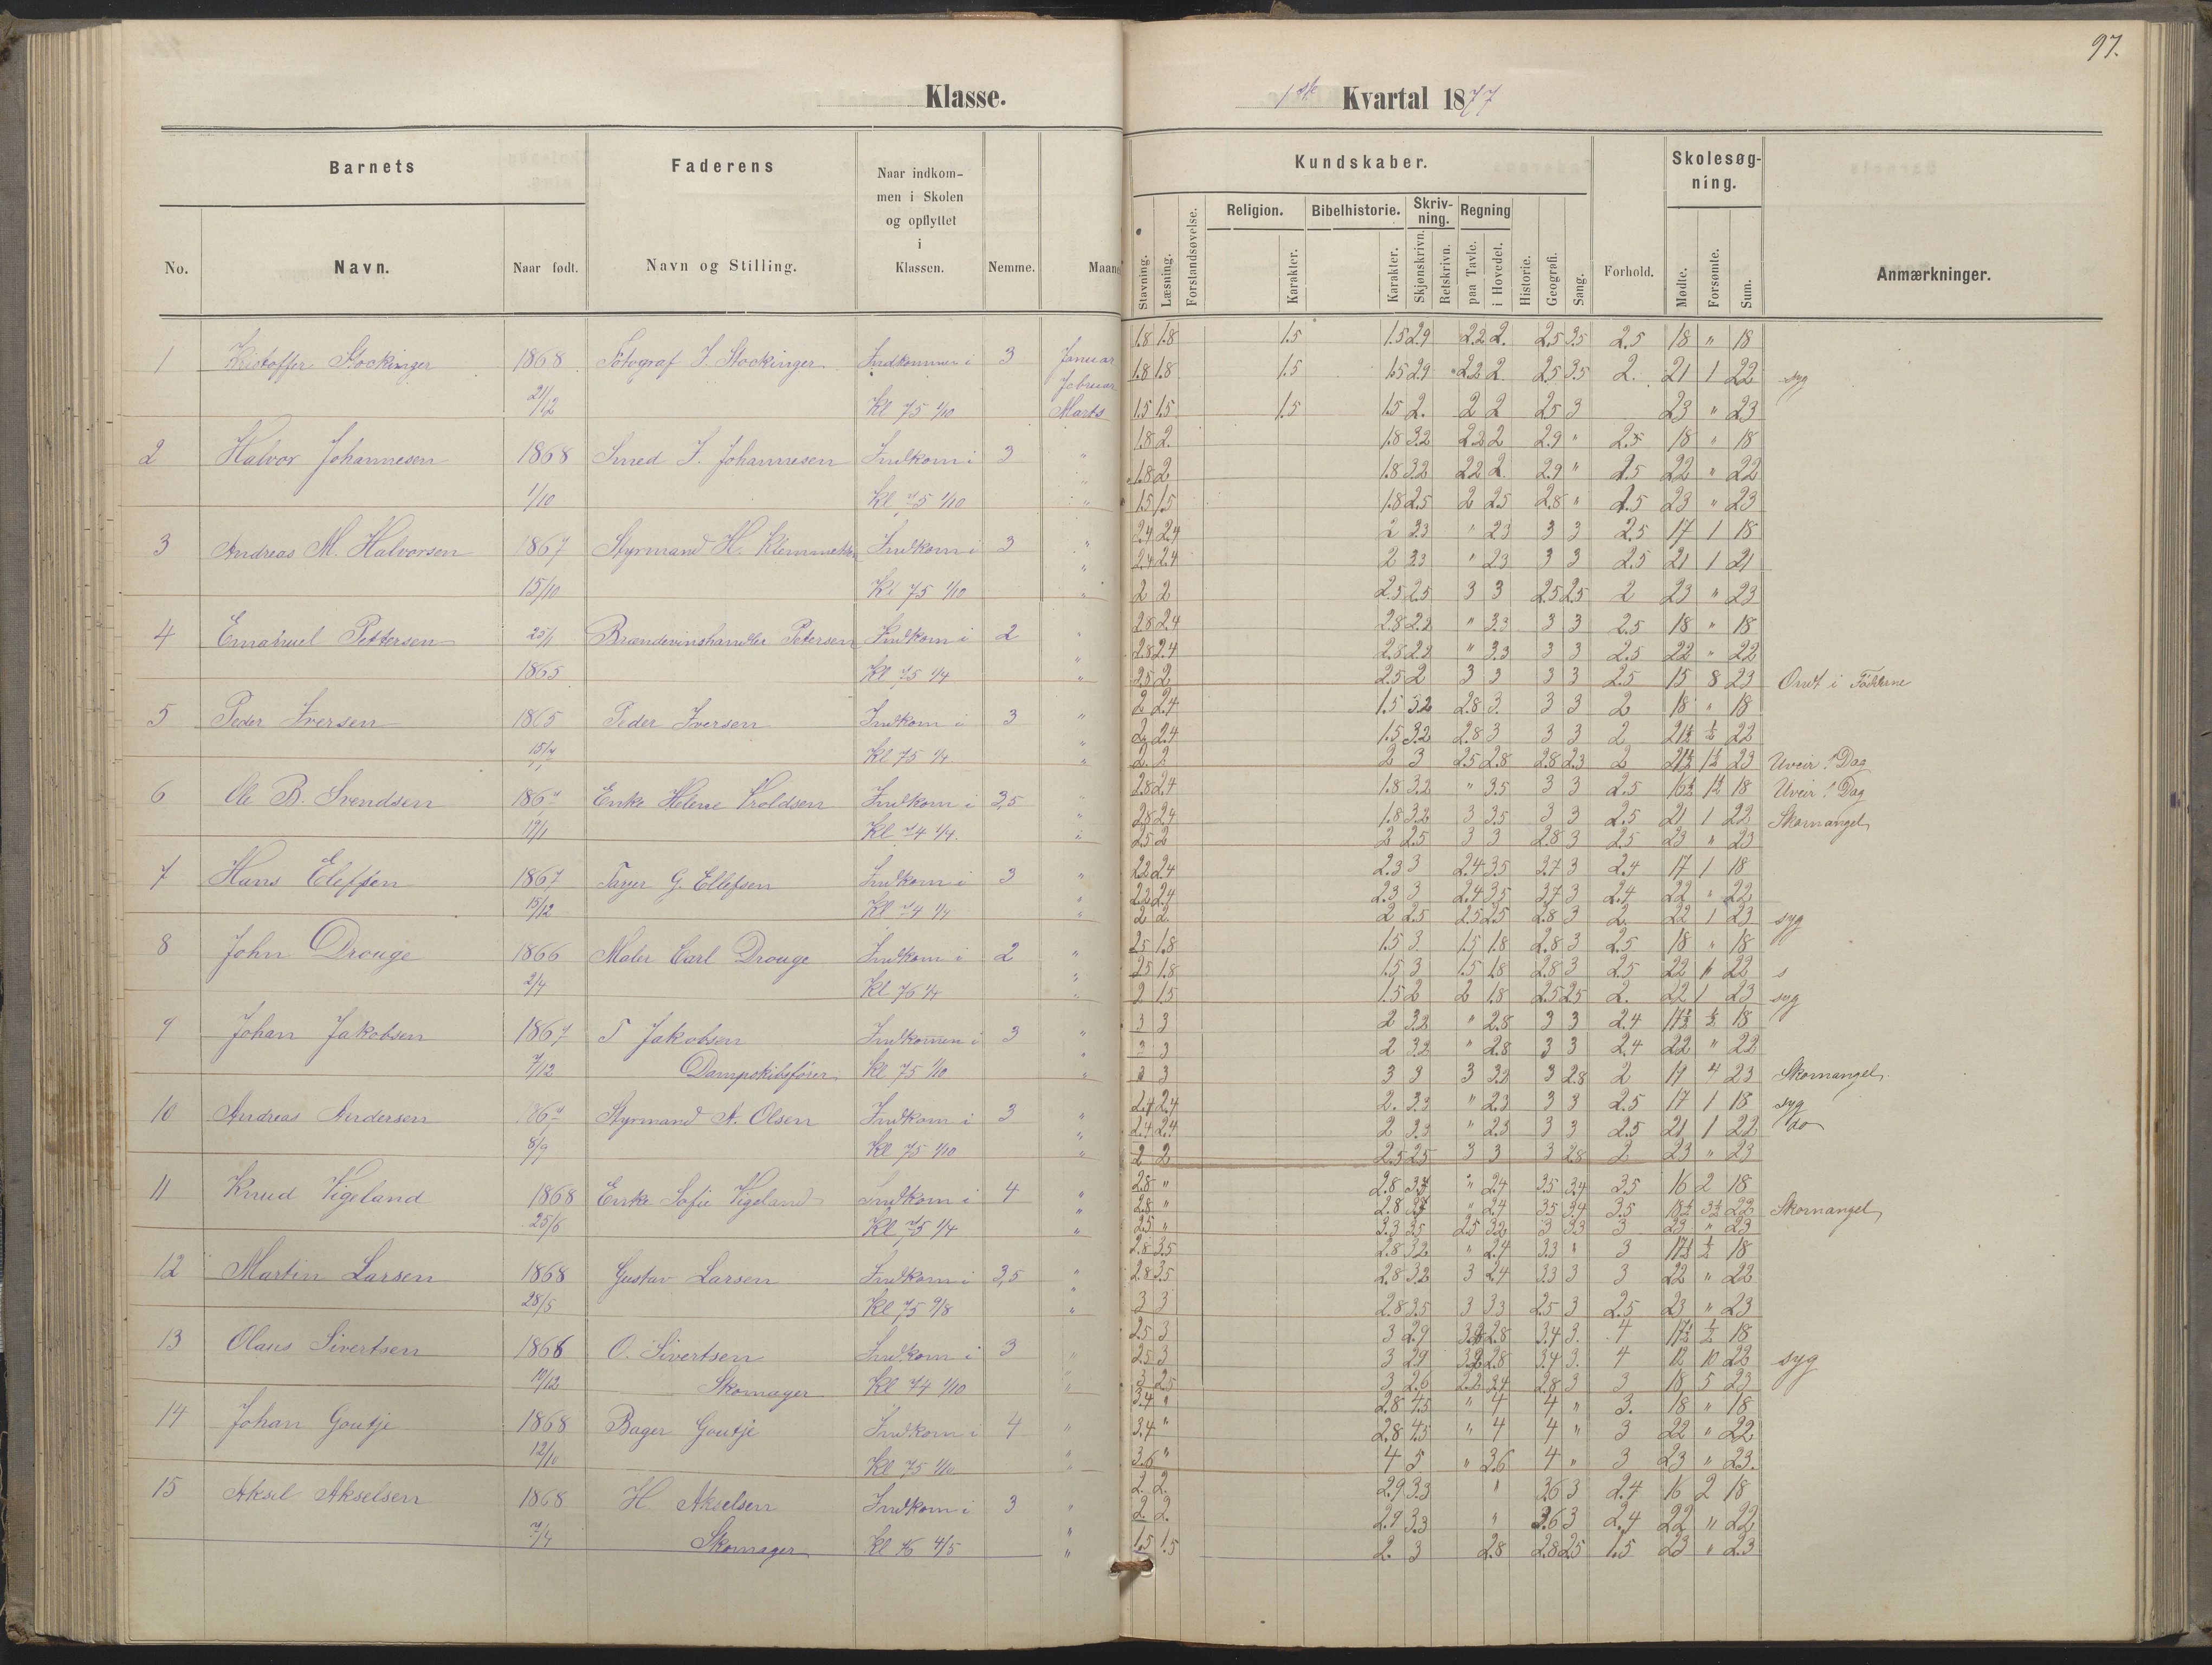 97.
Klasse.
1ste Kvartal 1877
Barnets
Faderens
Naar indkom-
men i Skolen
og opflyttet
i
Klassen.
Kundskaber.
Skolesøg-
ning.
No.
Navn.
Naar født.
Navn og Stilling.
Nemme.
Stavning.
Læsning.
Forstandsøvelse.
Religion.
Karakter.
Bibelhistorie.
Karakter.
Skriv-
ning.
Skjønskrivn.
Retskrivn.
Regning
paa Tavle.
i Hovedet.
Historie.
Geografi.
Sang.
Forhold.
Mødte.
Forsømte.
Sum.
Anmærkninger.
1 Kristoffer Stockinger 1868 Fotograf J. Stockinger Indkommen i 3 Januar
1.8 1.8 1.5 1.5 2.9 2.2 2. 2.5 3.5 2.5 18 " 18
Februar 1.8 1.8 1.5 1.5 2.9 2.2 2 2.5 3.5 2. 21 1 22 syg
21/12 Kl 75 1/10 Marts 1.5 1.5 1.5 1.5 2. 2 2 2.5 3 23 " 23
2 Halvor Johannesen 1868 Smed J. Johannesen Indkom i 3 "
1.8 2. 1.8 3.2 2.2 2 2.9 " 2.5 18 " 18
1.8 2 1.8 3.2 2.2 2. 2.9 " 22 " 22
1/10 Kl 75 1/10 " 1.5 1.5 1.8 2.5 2 2.5 2.8 " 23 " 23
3 Andreas M. Halvorsen 1867 Styrmand H. Indkom i 3 "
2.4 2.4 2 2.3 " 2.3 3 3 2.5 17 1 18
2.4 2.4 2 2.3 " 2.3 3 3 2.5 21 1 21
15/10 Kl 75 1/10 " 2 2 2.5 2.5 3 3 2.5 2.5 2 23 " 23
4 Emanuel Pettersen 25/1 Brændevinshandler Petersen Indkom i 2 "
2.8 2.4 2.8 2.2 " 3.3 3 3 2.5 18 " 18
2.8 2.4 2.8 2.2 " 3.3 3 3 2.5 22 " 22
1865 Kl 75 1/4 " 2.5 2 2.5 2 3 3 3 3 2.5 15 8 23 Ondt i
5 Peder Iversen 1865 Peder Iversen Indkom i 3 "
2 2.4 1.5 3.2 2.8 3. 3 3 2 18 " 18
2 2.4 1.5 3.2 2.8 3 3 3 2 21½ ½ 22
15/7 Kl 75 1/4 " 2. 2 2 3 2.5 2.8 2.8 2.3 2 21½ 1½ 23 Uveir 1 Dag
6 Ole B. Svendsen 1867 Enke Helene Troldsen Indkom i 3,5 "
2.8 2.4 1.8 3.2 " 3.5 3 3 2.5 16½ 1½ 18 Uveir 1 Dag
2.8 2.4 1.8 3.2 3 3.5 3 3 2.5 21 1 22 Skomangel
19/1 Kl 74 1/4. " 2.5 2 2 2.5 3 3 2.8 3 2.5 23 " 23
7 Hans Elefsen 1867 Tarjer G. Ellefsen Indkom i 3
2.2 2.4 2.3 3 2.4 3.5 3.7 3 2.4 17 1 18
2.2 2.4 2.3 3 2.4 3.5 3.7 3 2.4 22 " 22
15/12 Kl 74 1/4 " 2 2. 2 2.5 2.5 2.5 2.8 3 2. 22 1 23 syg
8 John Drouge 1866 Maler Carl Drouge Indkom i 2 "
2.5 1.8 1.5 3. 1.5 1.8 2.8 3 2.5 18 " 18
2.5 1.8 1.5 3 1.5 1.8 2.8 3 2.5 22 " 22 s
2/4 Kl 76 1/4 " 2 1.5 1.5 2 2 1.8 2.5 2.5 2. 22 1 23 syg
9 Johan Jakobsen 1867 T Jakobsen Indkommen i 3 "
3 3 2 3.2 " 2.8 3 3 2.4 17½ ½ 18
3 3 2 3.2 " 2.8 3 3 2.4 22 " 22
7/12 Dampskibsfører Kl 75 1/10 " 3 3 3 3 3 3.2 3 2.8 2 19 4 23 Skomangel
10 Andreas Andersen 1867 Styrmand A. Olsen Indkom i 3 "
2.4 2.4 2. 3.3 " 2.3 3 3 2.5 17 1 18 syg
2.4 2.4 2 3.3 " 2.3 3 3 2.5 21 1 22 do
8/9 Kl 75 1/10 " 2 2 2.5 2.5 3 3 3 2.8 2 23 " 23
11 Knud Vigeland 1868 Enke Sofie Vigeland Indkom i 4 "
2.8 " 2.8 3.3 " 2.4 3.5 3.4 3.5 16 2 18
2.8 " 2.8 " 2.4 3.5 3.4 3.5 18½ 3½ 22 Skomangel
25/6 Kl 75 1/4 " 2.5 " 3.3 3.5 2.5 3.2 3 3.3 3 23 " 23
12 Martin Larsen 1868 Gustav Larsen Indkom i 3,5 "
2.8 3.5 2.8 3.2 " 2.4 3.3 " 3 17½ ½ 18
2.8 3.5 2.8 3.2 3 2.4 3.3 3 3 22 " 22
28/5 Kl 75 9/8 " 3 3 2.8 3.5 3 3.3 2.5 3 2.5 23 " 23
13 Olaus Sivertsen 1866 O. Sivertsen Indkom i 3 "
2.5 3 3 2.9 2.8 3.4 3. 4 17½ ½ 18
2.5 3 3 2.9 2.8 3.4 3. 4 12 10 22 syg
10/12 Skomager Kl 74 1/10 " 3 2.5 3 2.6 2.2 2.4 2.8 3 3 18 5 23
14 Johan Goutje 1868 Bager Goutje Indkom i 4 "
3.4 " 2.8 4.5 " 4 4 " 3. 18 " 18
3.4 " 2.8 4.5 " 4 4 " 3 22 " 22
12/10 Kl 75 1/10 " 3.6 " 4 5 " 3.6 4 " 3 23 " 23.
15 Aksel Akselsen 1868 H. Akselsen Indkom i 3 "
2. 2. 2.9 3.3 " 3.6 3 2.4 16 2 18
2. 2. 2.9 3.3 " 3.6 3 2.4 22 " 22
7/4 Skomager Kl 76 4/5 " 1.5 1.5 2. 3 2.8 2.8 2.5 1.5 23 " 23